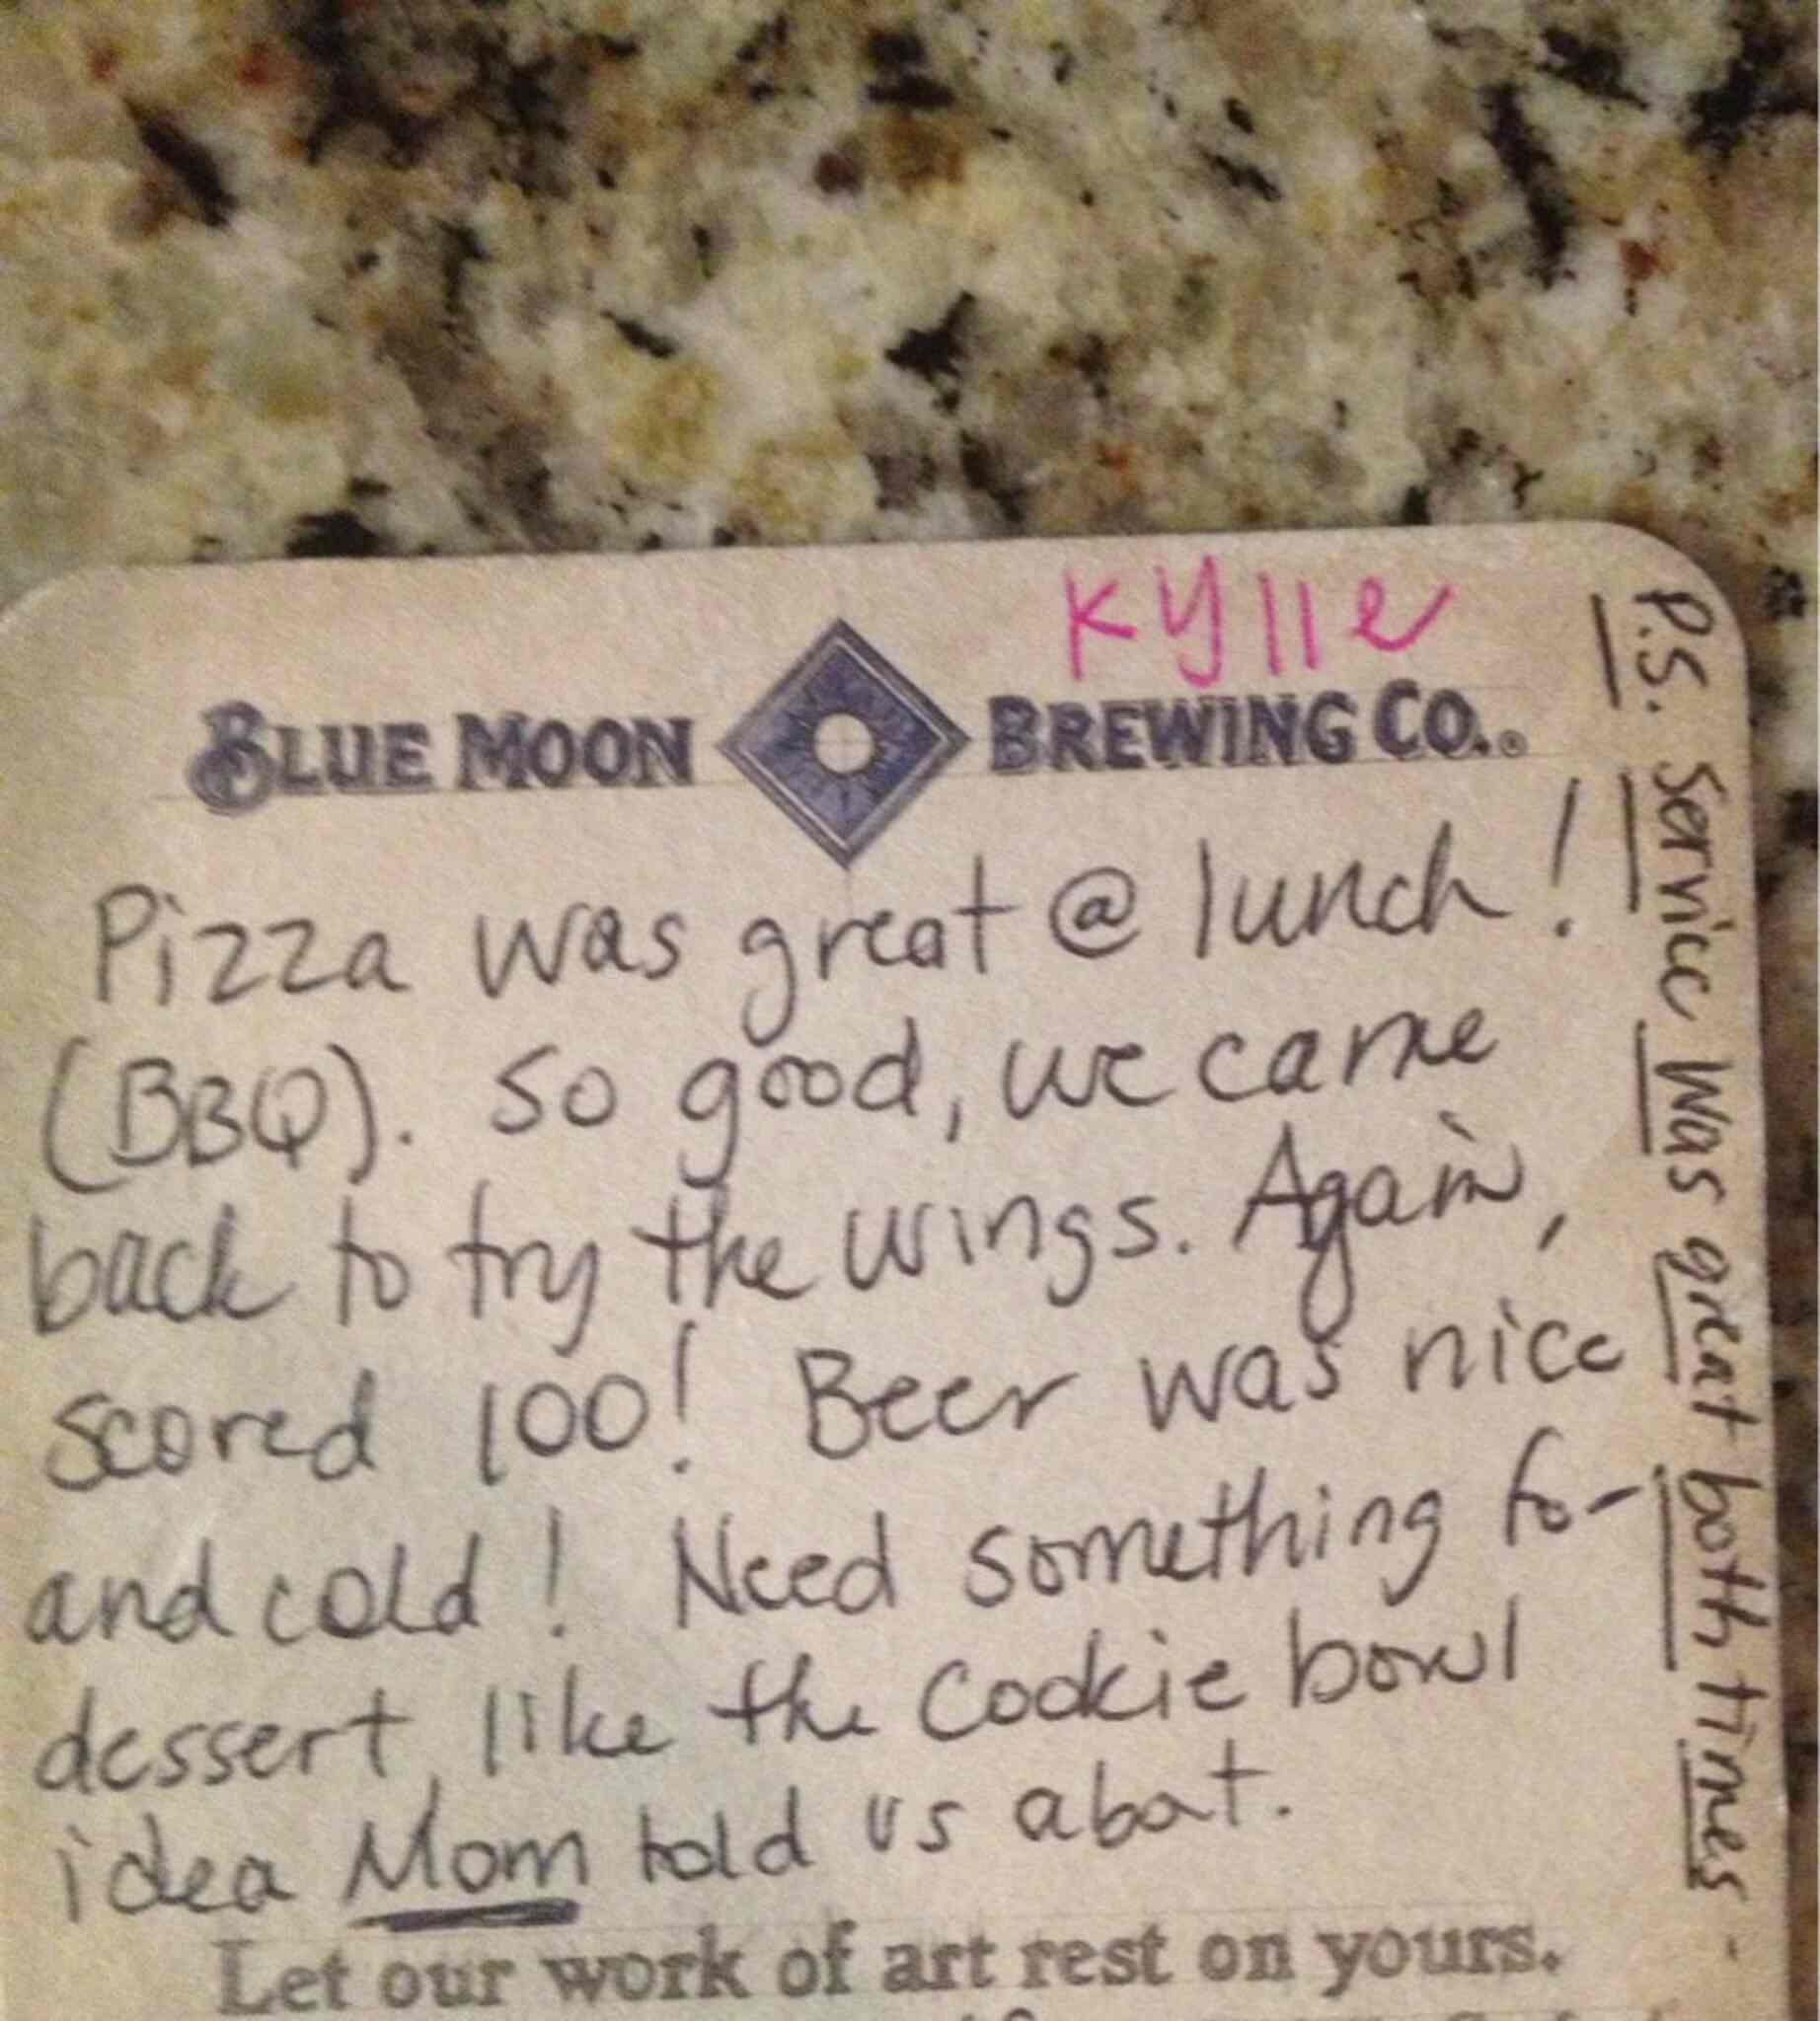 Kylle
BLUE MOON BREWING CO.®
Pizza was great @ lunch!
(BBQ). So good, we came
back to try the wings. Again,
scored 100! Beer was nice
and cold! Need something for
dessert, like the Cookie bowl
idea Mom told us about.
Let our work of art rest on yours.
P.S. Service was great both times -